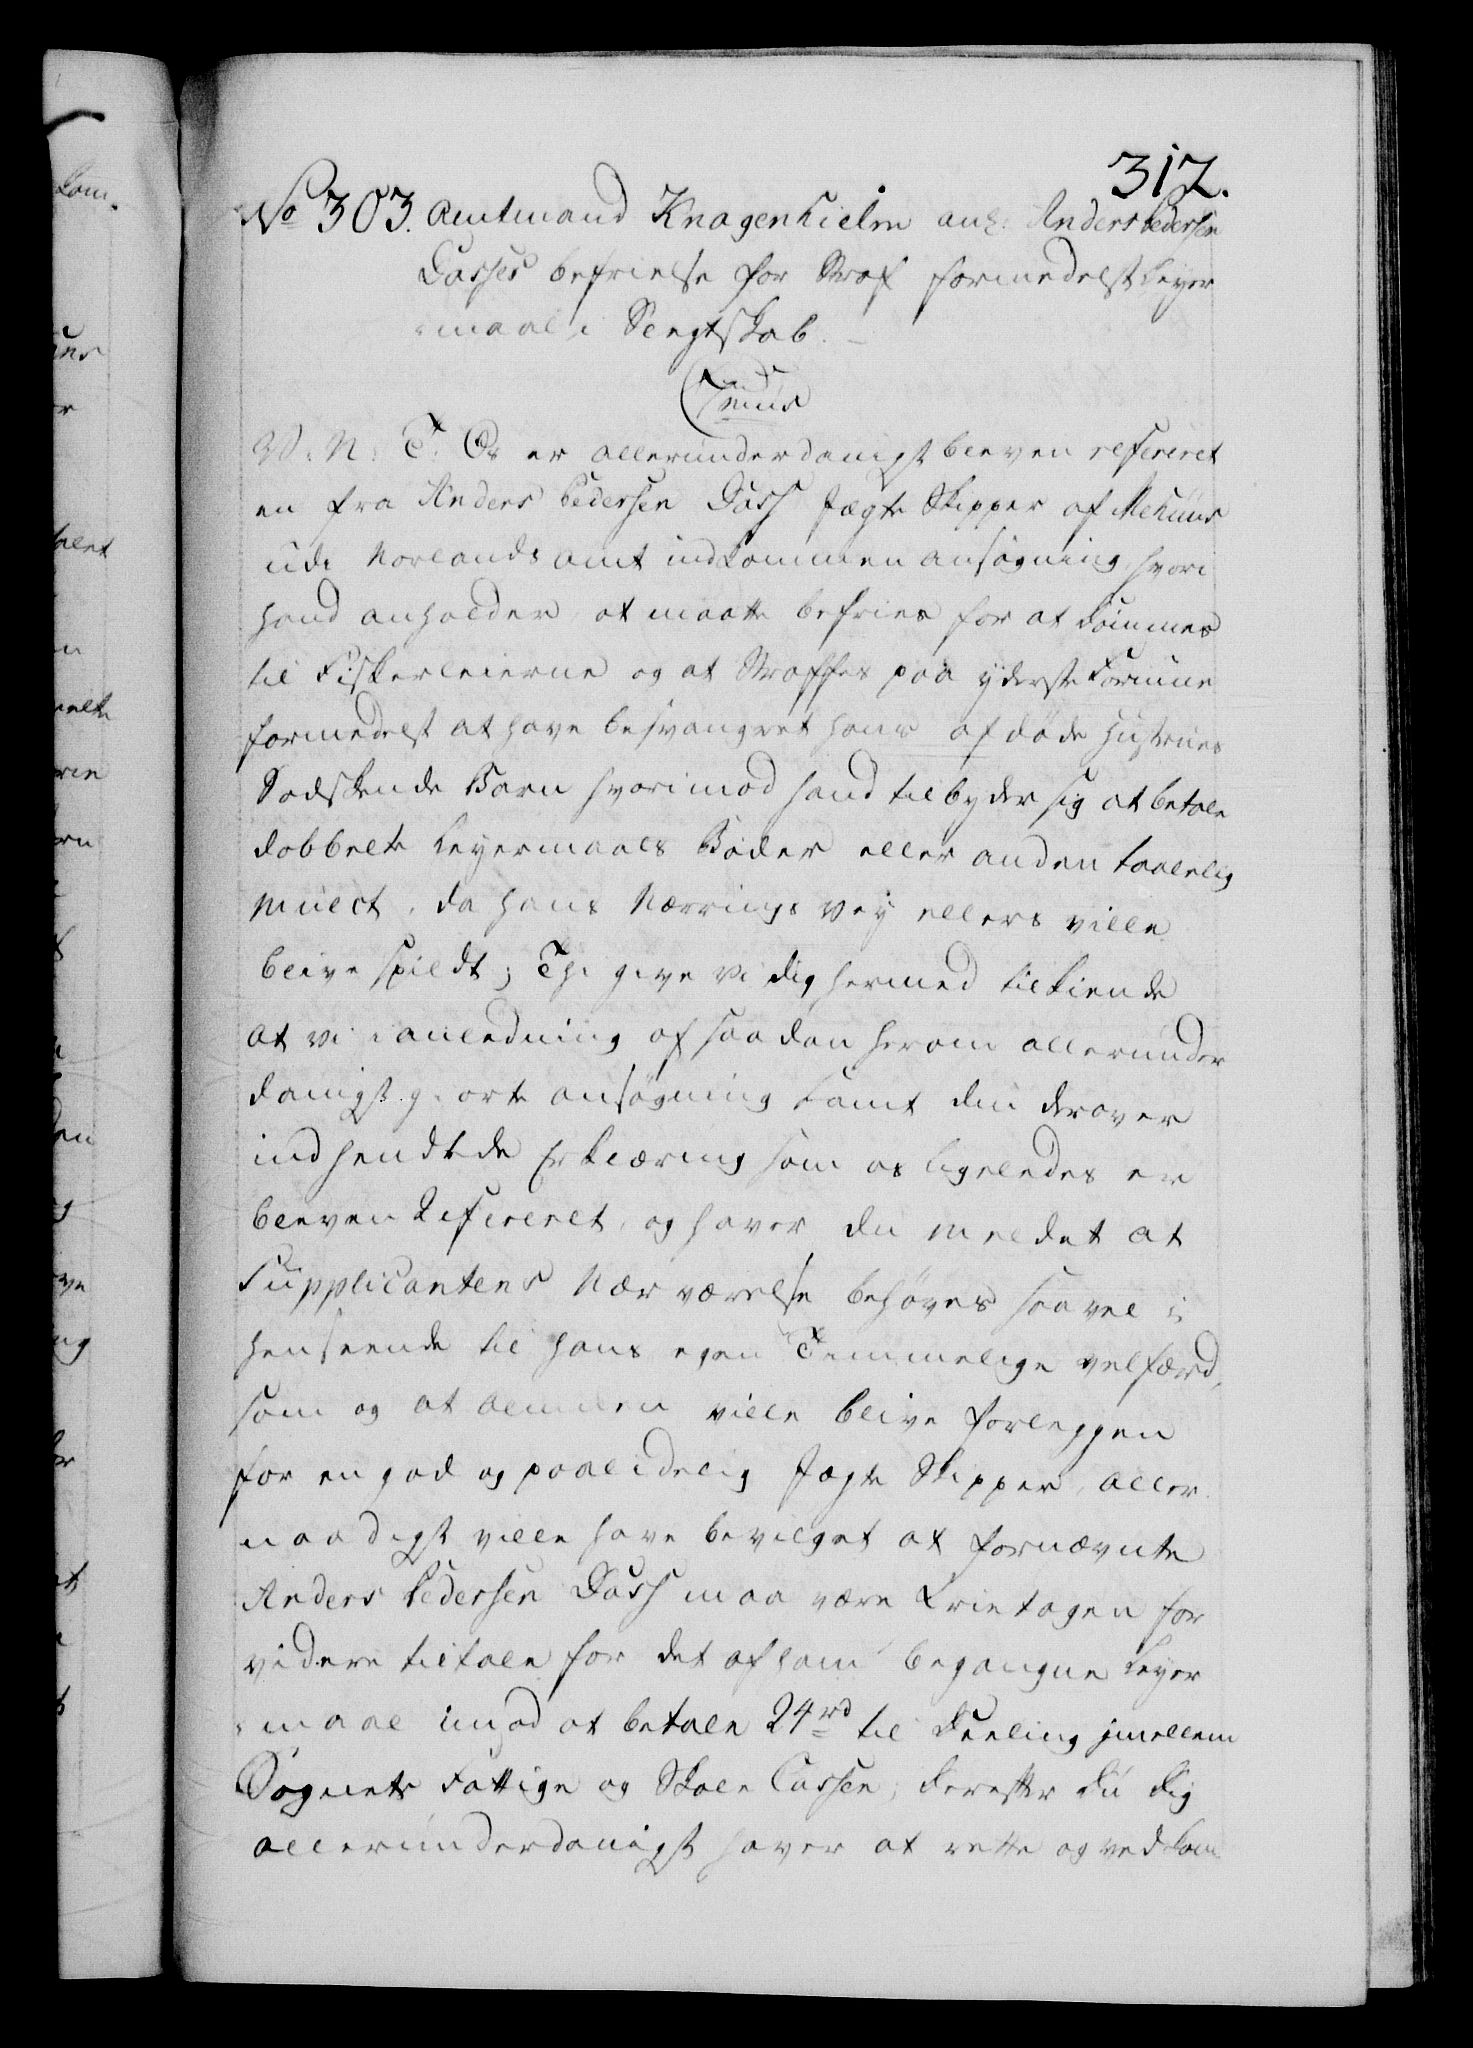 312.
No 303. Amtmand Knagenhielm anl: Anders Pedersen
Dasses befrielse for Straf formedelst Leyer
-maal i Slegtskab.
V: N: T: Os er allerunderdanigst bleven refereret
en fra Anders Pedersen Dass Jægte Skipper af
udi Norlands amt indkommen ansøgning, hvori
hand anholder at maatte befries for at dømmes
til Fiskerleierne og at Straffes paa yderste Formue
formedelst at have besvangret hans afdøde Hustrues
Sødskende Barn hvorimod hand tilbyder sig at betale
dobbelte Leyermaals Bøder eller anden taalelig
Mulct, da hans Nærrings Vey ellers ville
blive spildt; Thi give Vi dig hermed tilkiende
at Vi i anledning af saadan herom allerunder
danigst giorte ansøgning samt din derover
indhendtede Erklæring som os ligeledes er
bleven Refereret, og haver du meldet at
Supplicantens Nærværelse behøves saavel i
henseende til hans egen Temmelige velfærd,
som og at Almuen ville blive forleggen
for en god og paalidelig Jægte Skipper, aller
naadigst ville have bevilget at fornævnte
Anders Pedersen Dass maa være Frietagen for
videre tiltale for det af ham begangne Leyer
-maal imod at betale 24 rd til Deeling imellem
Sognets Fattige og Skole Cassen, derefter du dig
allerunderdanigst haver at rette og vedkom